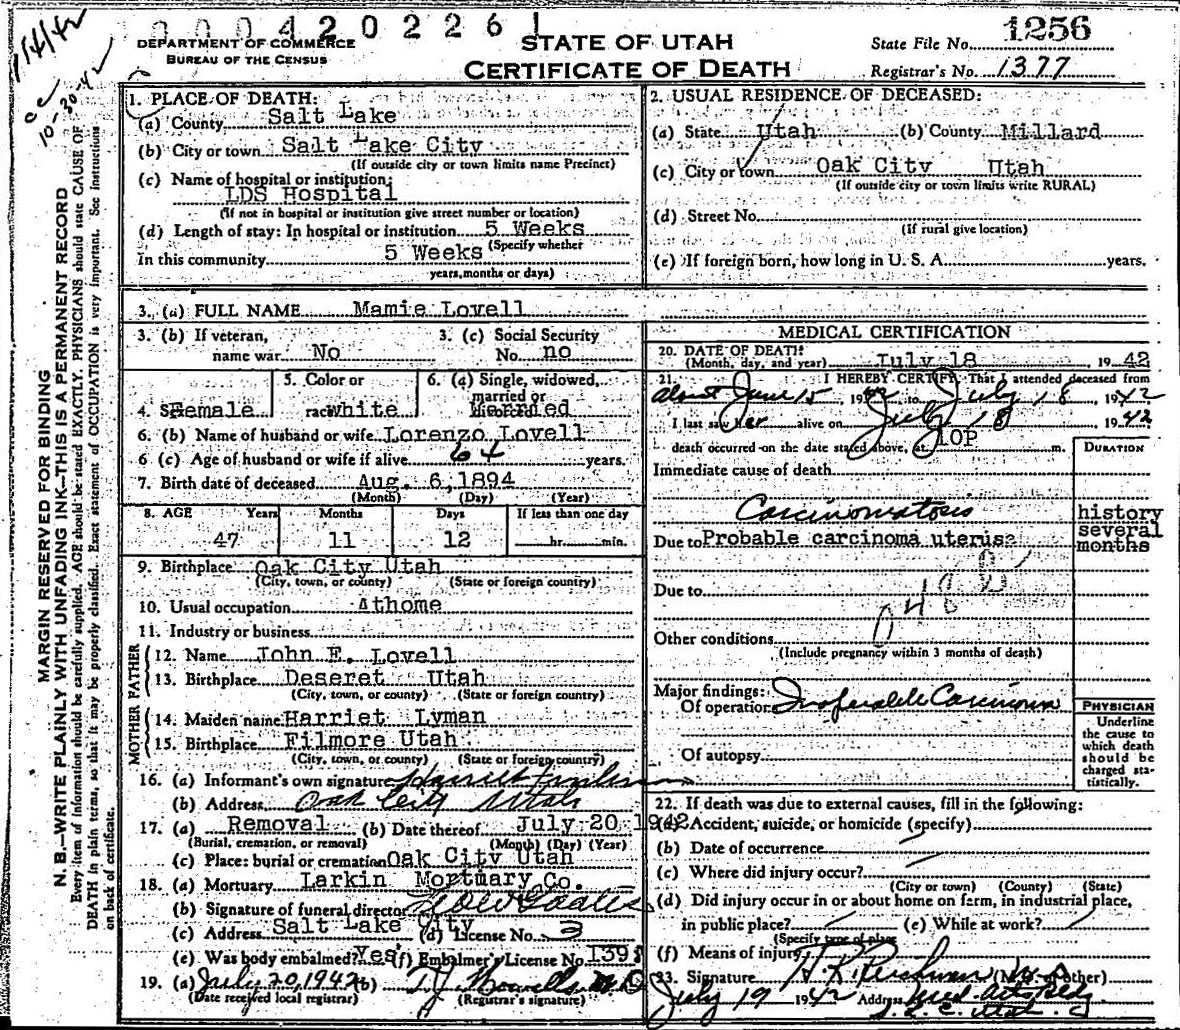 0 0 0 4 2 0 2 2 6 1
1256
DEPARTMENT OF COMMERCE
BUREAU OF THE CENSUS
STATE OF UTAH
CERTIFICATE OF DEATH
State File No.
Registrar's No. 1377
10-20-42
MARGIN RESERVED FOR BINDING
N. B.—WRITE PLAINLY WITH UNFADING INK—THIS IS A PERMANENT RECORD
Every item of information should be carefully supplied. AGE should be stated EXACTLY. PHYSICIANS should state CAUSE OF
DEATH in plain terms, so that it may be properly classified. Exact statement of OCCUPATION is very important. See instructions
on back of certificate.
1. PLACE OF DEATH:
(a) County Salt Lake
(b) City or town Salt Lake City
(If outside city or town limits name Precinct)
(c) Name of hospital or institution:
LDS Hospital
(If not in hospital or institution give street number or location)
(d) Length of stay: In hospital or institution 5 Weeks
(Specify whether
In this community 5 Weeks
years, months or days)
2. USUAL RESIDENCE OF DECEASED:
(a) State Utah (b) County Millard
(c) City or town Oak City Utah
(If outside city or town limits write RURAL)
(d) Street No.
(If rural give location)
(e) If foreign born, how long in U. S. A. years.
3. (a) FULL NAME Mamie Lovell
3. (b) If veteran,
name war No
3. (c) Social Security
No. no
4. Sex Female
5. Color or
race white
6. (a) Single, widowed,
married or
6. (b) Name of husband or wife Lorenzo Lovell
6 (c) Age of husband or wife if alive 64 years.
7. Birth date of deceased Aug. 6,1894
(Month) (Day) (Year)
8. AGE Years Months Days If less than one day
47 11 12 hr. min.
9. Birthplace Oak City Utah
(City, town, or county) (State or foreign country)
10. Usual occupation Athome
11. Industry or business
FATHER
12. Name John E. Lovell
13. Birthplace Deseret Utah
(City, town, or county) (State or foreign country)
MOTHER
14. Maiden name Harriet Lyman
15. Birthplace Filmore Utah
(City, town, or county) (State or foreign country)
16. (a) Informant's own signature Harriet
(b) Address Oak City Utah
17. (a) Removal (b) Date thereof July 20 1942
(Burial, cremation, or removal) (Month) (Day) (Year)
(c) Place: burial or cremation Oak City Utah
18. (a) Mortuary Larkin Mortuary Co.
(b) Signature of funeral director
(c) Address Salt Lake City (d) License No. 3
(e) Was body embalmed? Yes (f) Embalmer's License No. 1391
19. (a) July 20, 1942 (b) T.J. Howells M D
(Date received local registrar) (Registrar's signature)
MEDICAL CERTIFICATION
20. DATE OF DEATH:
(Month, day, and year) July 18 1942
21. I HEREBY CERTIFY, That I attended deceased from
about June 15, 1942 to July 18, 1942
I last saw her alive on July 18 1942
death occurred on the date stated above, at 10P m.
DURATION
Immediate cause of death
Carcinomatosis
Due to Probable carcinoma uterus?
history
several
months
Due to
048
Other conditions
(Include pregnancy within 3 months of death)
Major findings:
Of operation Inoperable Carcinoma
Of autopsy
PHYSICIAN
Underline
the cause to
which death
should be
charged sta-
tistically.
22. If death was due to external causes, fill in the following:
(a) Accident, suicide, or homicide (specify)
(b) Date of occurrence
(c) Where did injury occur?
(City or town) (County) (State)
(d) Did injury occur in or about home on farm, in industrial place,
in public place? (e) While at work?
(Specify type of place
(f) Means of injury
23. Signature (M. D. or other)
July 19 1942 Address Med. Arts Bldg
S. L. C. Utah